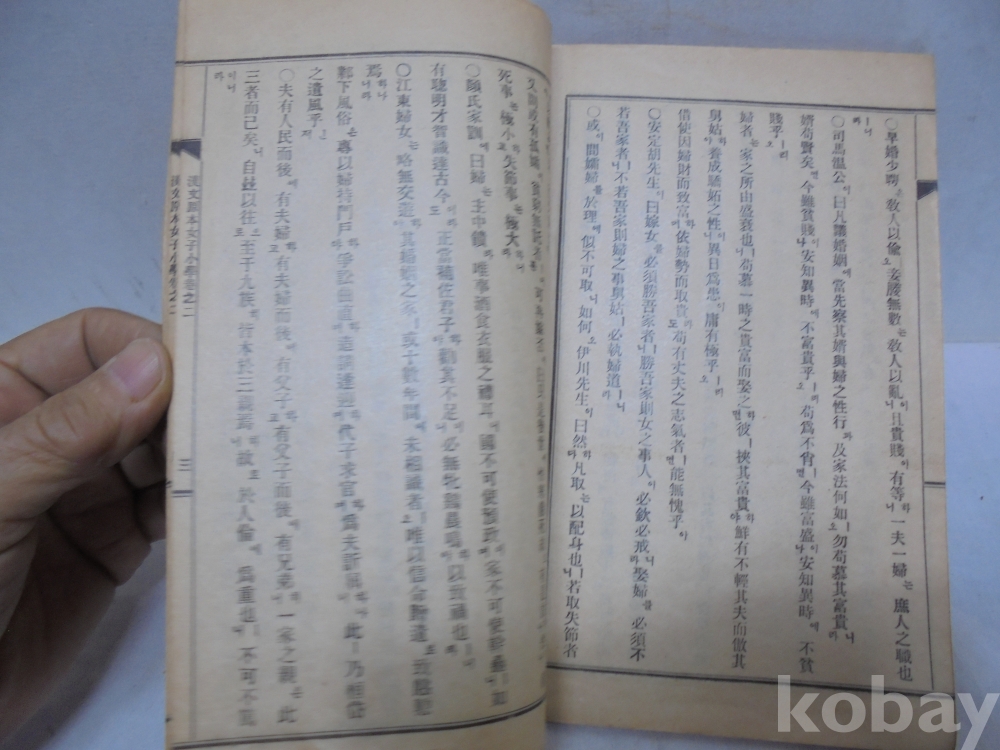 ○早婚少聘은敎人以偸오妾媵無數는敎人以亂이니且貴賤이有等하니一夫一婦는庶人之職也
ㅣ니라
○司馬溫公이曰凡議婚姻에當先察其婿與婦之性行과及家法何如ㅣ오勿苟慕其富貴ㅣ니라
婿苟賢矣면今雖貧賤이나安知異時에不富貴乎ㅣ리오苟爲不肖면今雖富盛이나安知異時에不貧
賤乎ㅣ리오
婦者는家之所由盛衰也ㅣ니苟慕一時之貴富而娶之하면彼ㅣ挾其富貴하야鮮有不輕其夫而傲其
舅姑하야養成驕妬之性이면異日爲患이庸有極乎ㅣ리오
借使因婦財而致富하며依婦勢而取貴라도苟有丈夫之志氣者ㅣ면能無愧乎아
○安定胡先生이曰嫁女를必須勝吾家者ㅣ니勝吾家則女之事人이必欽必戒니라娶婦를必須不
若吾家者ㅣ니不若吾家則婦之事舅姑ㅣ必執婦道ㅣ니라
○或이問孀婦를於理에似不可取니如何오伊川先生이曰然하다凡取는以配身也ㅣ니若取失節者
死事는極小하고失節事는極大하니라
○顔氏家訓에曰婦는主中饋라唯事酒食衣服之禮耳니國不可使預政이며家不可使幹蠱ㅣ니如
有聰明才智識達古今이라도正當輔佐君子하야勸其不足이니必無牝鷄晨鳴하야以致禍也ㅣ니라
○江東婦女는略無交遊하야其婚姻之家ㅣ或十數年間에未相識者ㅣ오唯以信命贈遺로致慇懃
焉하나니라
鄴下風俗은專以婦持門戶하야爭訟曲直하며造請逢迎하며代子求官하며爲夫訴屈하나니此ㅣ乃恒代
之遺風乎ㄴ져
○夫有人民而後에有夫婦하고有夫婦而後에有父子하고有父子而後에有兄弟하니一家之親은此
三者而已矣니自玆以往으로至于九族히皆本於三親焉하니故로於人倫에爲重也ㅣ니不可不篤
이니라
漢文原本女子小學卷之二 三
漢文原本女子小學卷之二
kobay